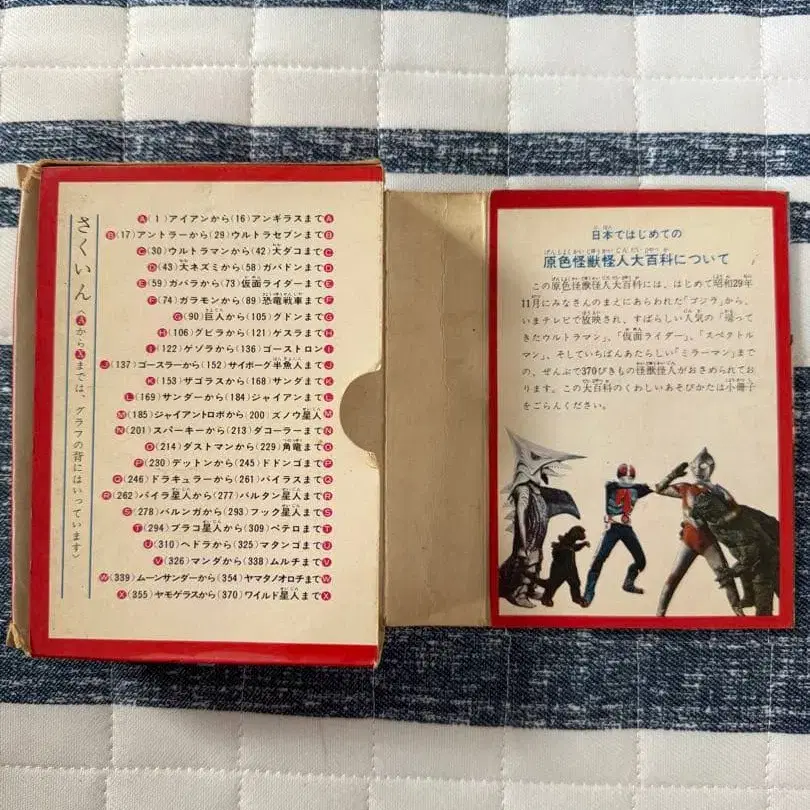 さくいん
〈AからXまでは、グラフの背にはいっています〉
A(1)アイアンから(16)アンギラスまでA
B(17)アントラーから(29)ウルトラセブンまでB
C(30)ウルトラマンから(42)大ダコまでC
D(43)大ネズミから(58)ガバドンまでD
E(59)ガバラから(73)仮面ライダーまでE
F(74)ガラモンから(89)恐竜戦車までF
G(90)巨人から(105)グドンまでG
H(106)グビラから(121)ゲスラまでH
I(122)ゲゾラから(136)ゴーストロンI
J(137)ゴースラーから(152)サイボーグ半魚人までJ
K(153)ザゴラスから(168)サンダまでK
L(169)サンダーから(184)ジャイアンまでL
M(185)ジャイアントロボから(200)ズノウ星人M
N(201)スパーキーから(213)ダコーラーまでN
O(214)ダストマンから(229)角竜までO
P(230)デットンから(245)ドドンゴまでP
Q(246)ドラキュラーから(261)バイラスまでQ
R(262)バイラ星人から(277)バルタン星人までR
S(278)バルンガから(293)フック星人までS
T(294)ブラコ星人から(309)ペテロまでT
U(310)ヘドラから(325)マタンゴまでU
V(326)マンダから(338)ムルチまでV
W(339)ムーンサンダーから(354)ヤマタノオロチまでW
X(355)ヤモゲラスから(370)ワイルド星人までX
日本ではじめての
原色怪獣怪人大百科について
この原色怪獣怪人大百科には、はじめて昭和29年
11月にみなさんのまえにあらわれた「ゴジラ」から、
いまテレビで放映され、すばらしい人気の「帰って
きたウルトラマン」、「仮面ライダー」、「スペクトル
マン」、そしていちばんあたらしい「ミラーマン」まで
の、ぜんぶで370ぴきもの怪獣怪人がおさめられてお
ります。この大百科のくわしいあそびかたは小冊子
をごらんください。